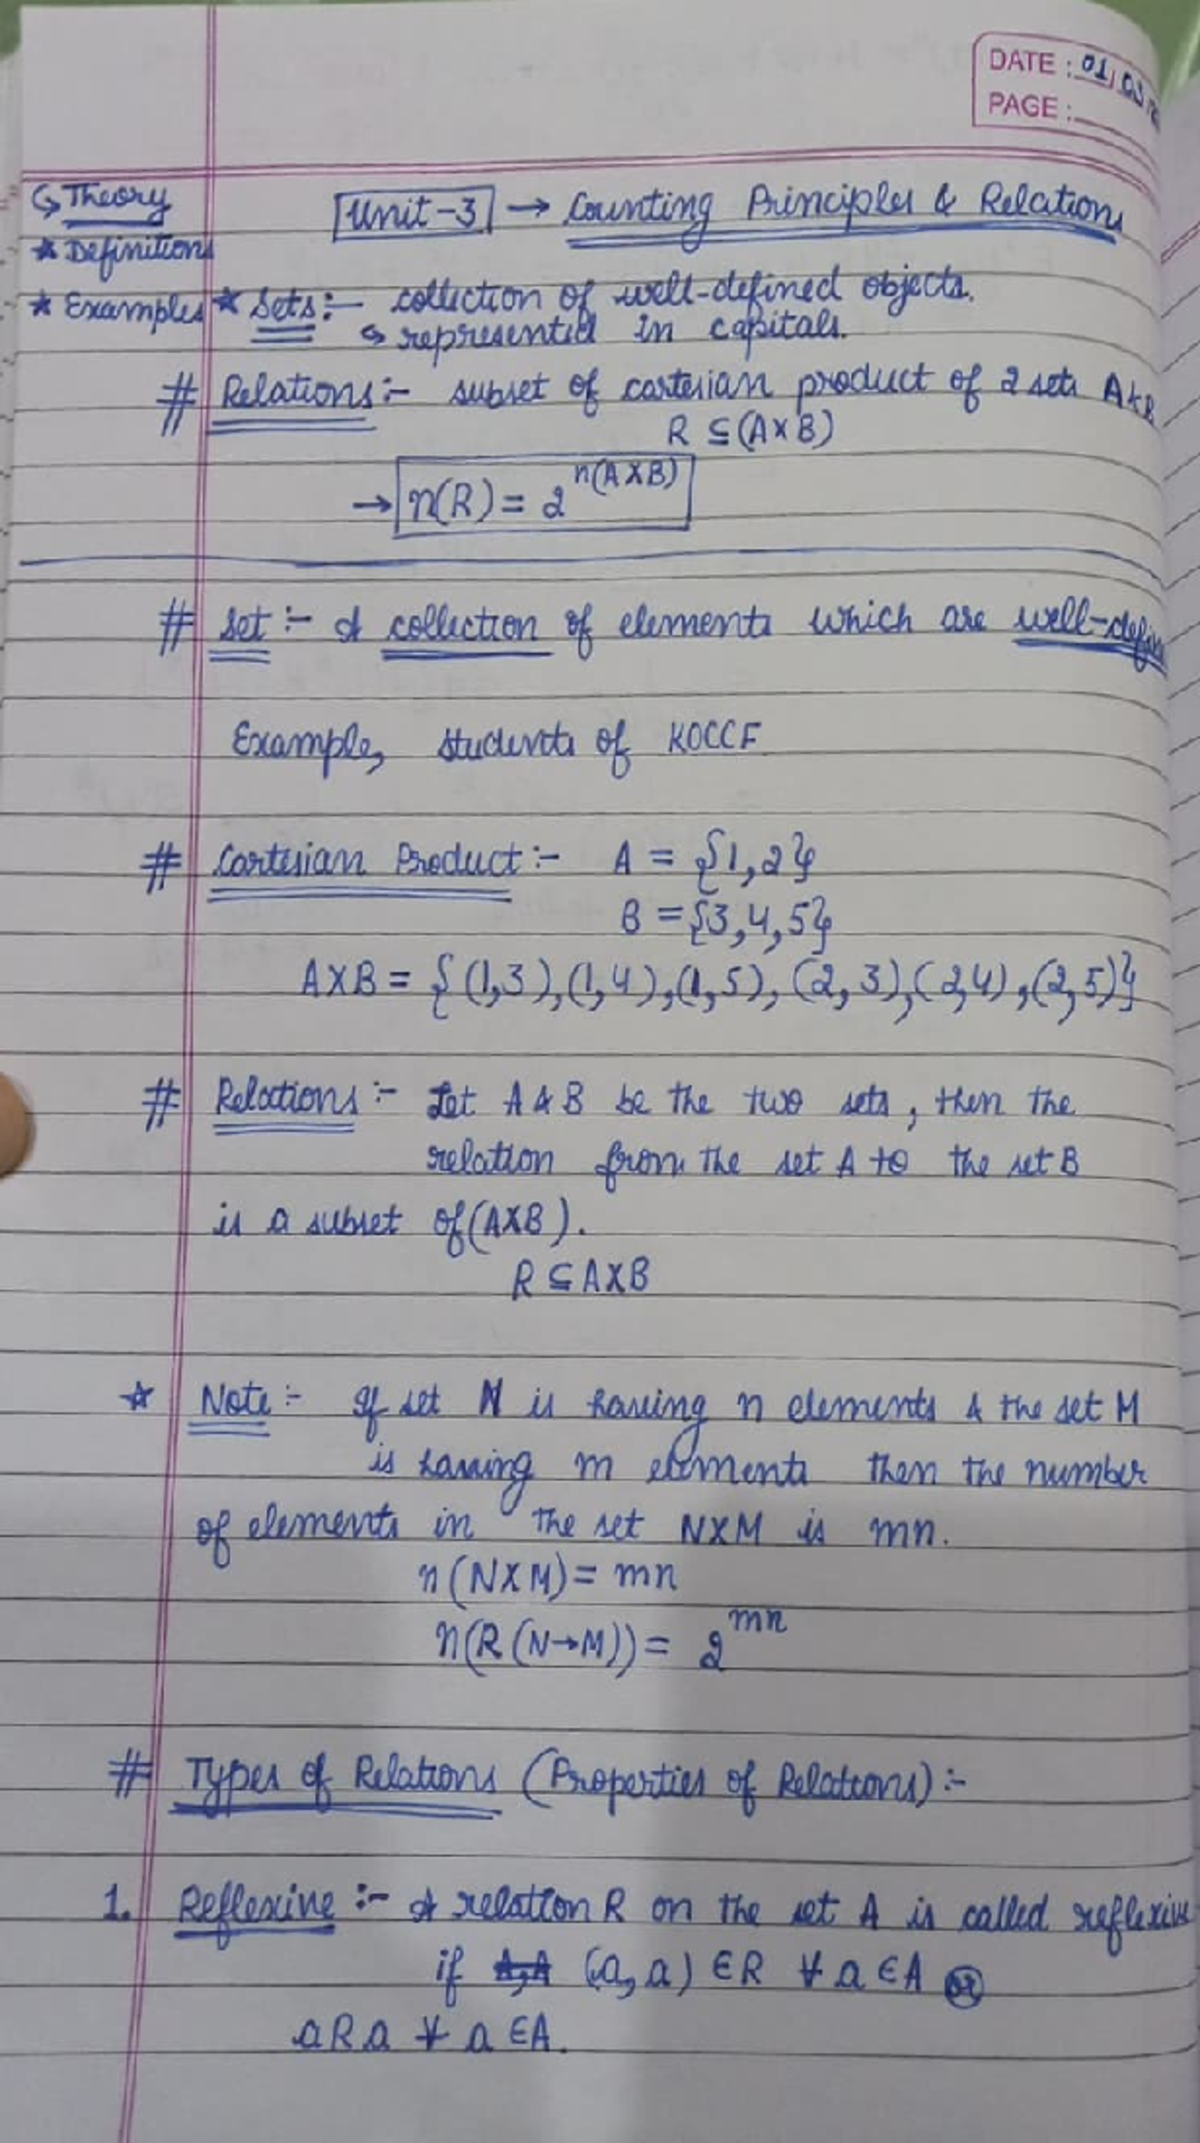 DATE : 01/03/2
PAGE :
↳ Theory
Unit-3 → Counting Principles & Relations
★ Definitions
★ Examples
★ Sets :- collection of well-defined objects.
↳ represented in capitals.
# Relations :- subset of cartesian product of 2 sets A & B
R ⊆ (A×B)
→ n(R) = 2^n(A×B)
# Set :- A collection of elements which are well-defin
Example, students of KOCCF
# Cartesian Product :- A = {1,2}
B = {3,4,5}
A×B = {(1,3),(1,4),(1,5),(2,3),(2,4),(2,5)}
# Relations :- Let A & B be the two sets, then the
relation from the set A to the set B
is a subset of (A×B).
R ⊆ A×B
☆ Note :- If set N is having n elements & the set M
is having m elements then the number
of elements in the set N×M is mn.
n(N×M) = mn
n(R(N→M)) = 2^mn
# Types of Relations (Properties of Relations) :-
1. Reflexive :- A relation R on the set A is called reflexive
if (a,a) ∈ R ∀ a ∈ A or
aRa ∀ a ∈ A.